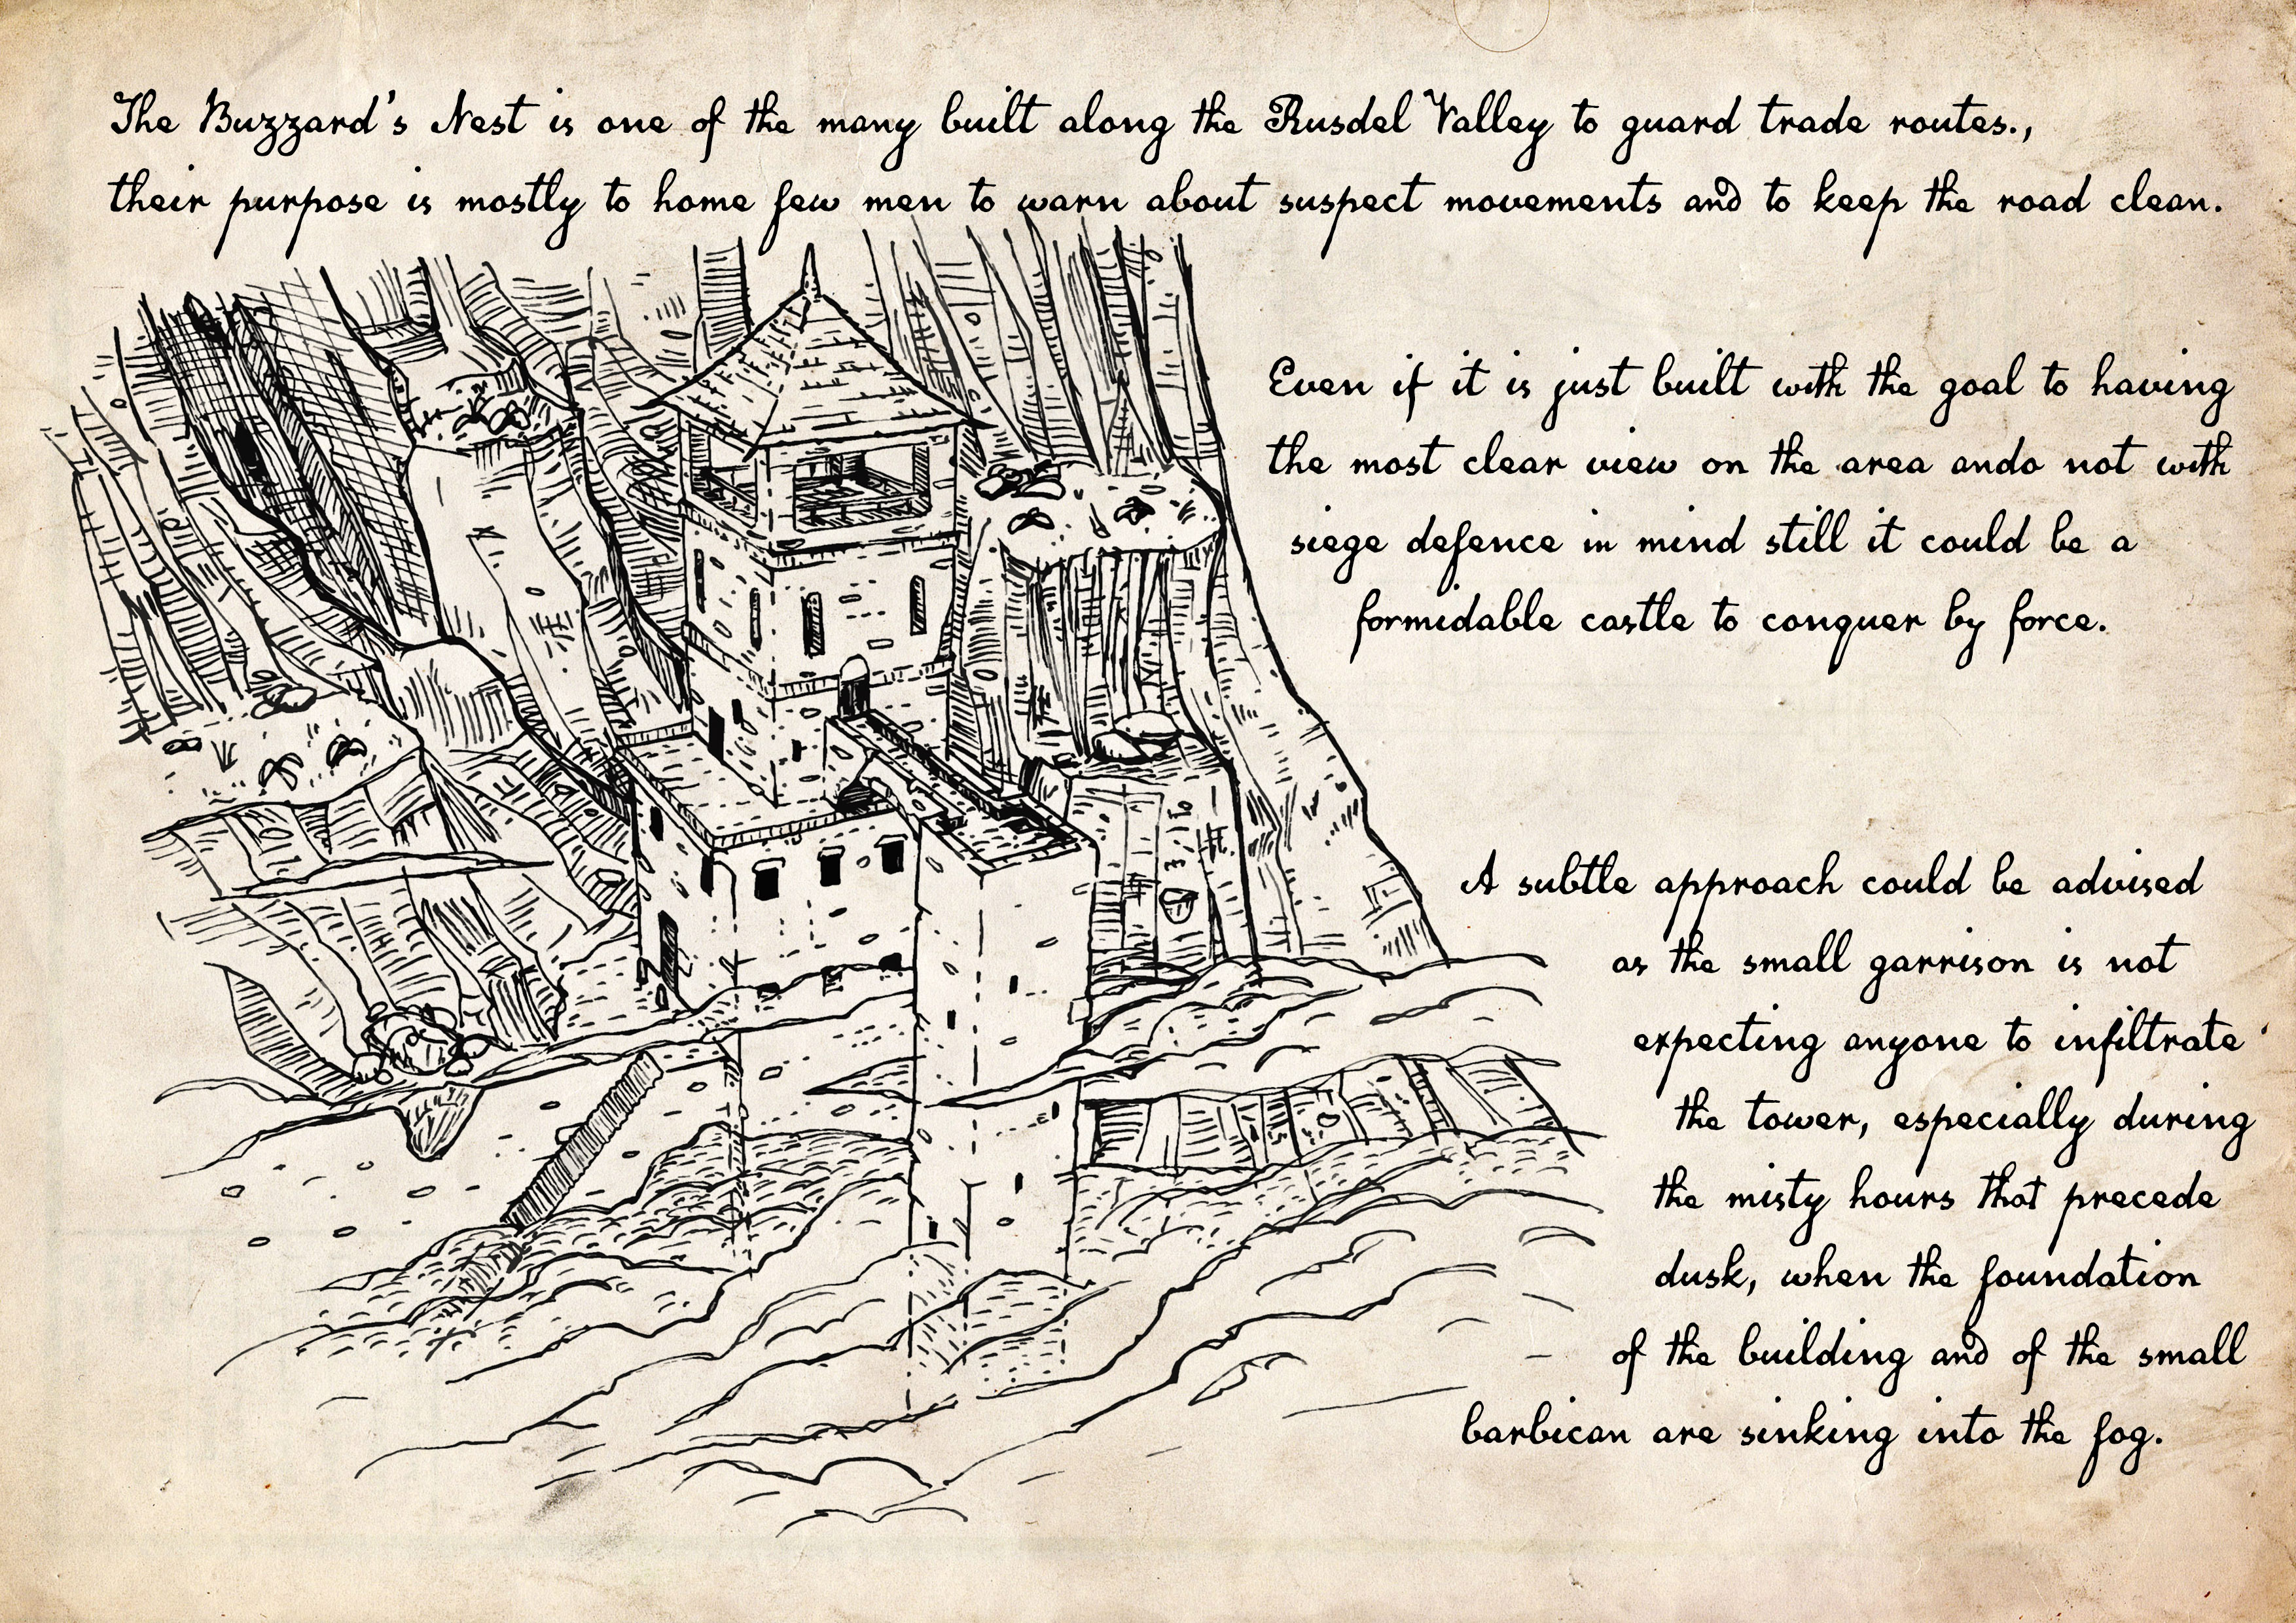 The Buzzard's Nest is one of the many built along the Rusdel Valley to guard trade routes.,
their purpose is mostly to home few men to warn about suspect movements and to keep the road clean.
Even if it is just built with the goal to having
the most clear view on the area ando not with
siege defence in mind still it could be a
formidable castle to conquer by force.
A subtle approach could be advised
as the small garrison is not
expecting anyone to infiltrate
the tower, especially during
the misty hours that precede
dusk, when the foundation
of the building and of the small
barbican are sinking into the fog.